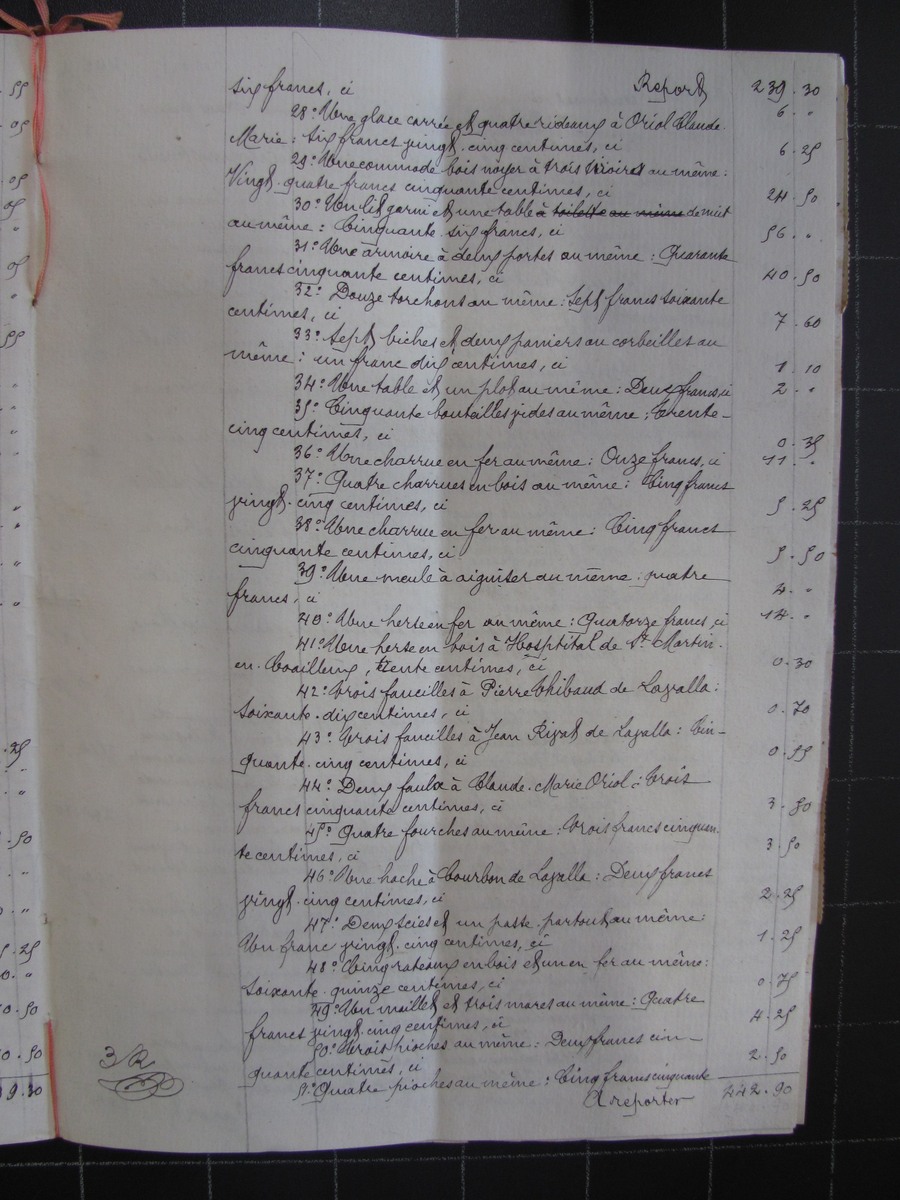 six francs, ci Report 239.30
6. "
28° Une glace carrée et quatre rideaux à Oriol Claude
Marie : six francs vingt-cinq centimes, ci 6.25
29° Une commode bois noyer à trois tiroirs au même :
Vingt-quatre francs cinquante centimes, ci 24.50
30° Un lit garni et une table à toilette au même de nuit
au même : Cinquante-six francs, ci 56. "
31° Une armoire à deux portes au même : Quarante
francs cinquante centimes, ci 40.50
32° Douze torchons au même : Sept francs soixante
centimes, ci 7.60
33° Sept biches et deux paniers ou corbeilles au
même : un franc dix centimes, ci 1.10
34° Une table et un plot au même : Deux francs, ci 2. "
35° Cinquante bouteilles vides au même ; Trente-
cinq centimes, ci 0.35
36° Une charrue en fer au même : Onze francs, ci 11. "
37° Quatre charrues en bois au même : Cinq francs
vingt-cinq centimes, ci 5.25
38° Une charrue en fer au même : Cinq francs
cinquante centimes, ci 5.50
39° Une meule à aiguiser au même : quatre
francs, ci 4. "
40° Une herse en fer au même : Quatorze francs, ci 14. "
41° Une herse en bois à Hosptital de St Martin-
en-Coailleux, trente centimes, ci 0.30
42° Trois faucilles à Pierre Thibaud de Lavalla :
Soixante-dix centimes, ci 0.70
43° Trois faucilles à Jean Rivat de Lavalla : Cin-
quante-cinq centimes, ci 0.55
44° Deux faulx à Claude-Marie Oriol : Trois
francs cinquante centimes, ci 3.50
45° Quatre fourches au même : Trois francs cinquan-
te centimes, ci 3.50
46° Une hache à Courbon de Lavalla : Deux francs
vingt-cinq centimes, ci 2.25
47° Deux scies et un passe-partout au même :
Un franc vingt-cinq centimes, ci 1.25
48° Cinq rateaux en bois et un en fer au même :
Soixante-quinze centimes, ci 0.75
49° Un maillet et trois mares au même : Quatre
francs vingt-cinq centimes, ci 4.25
50° Trois pioches au même : Deux francs cin-
quante centimes, ci 2.50
51° Quatre pioches au même : Cinq francs cinquante
A reporter 442.90